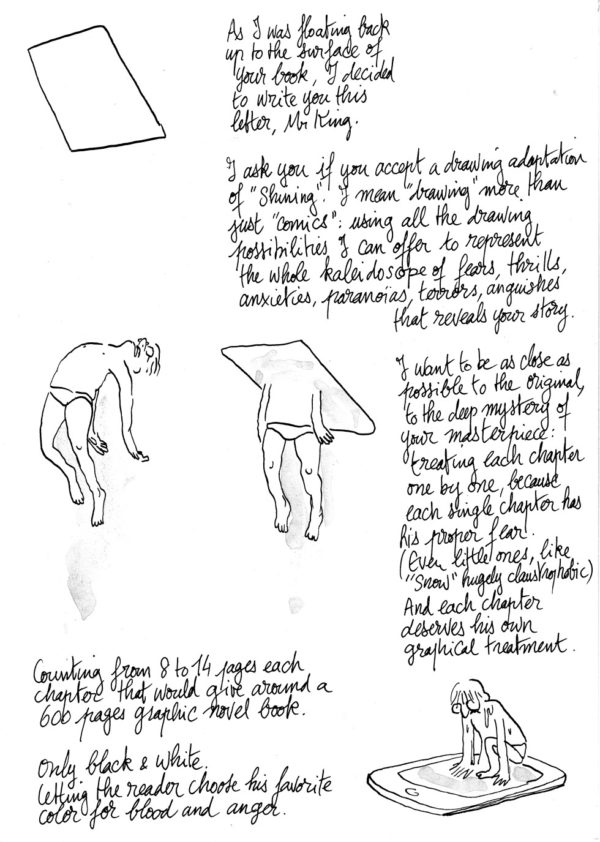 As I was floating back
up to the surface of
your book, I decided
to write you this
letter, Mr King.
I ask you if you accept a drawing adaptation
of "Shining". I mean "drawing" more than
just "comics": using all the drawing
possibilities I can offer to represent
the whole kaleidoscope of fears, thrills,
anxieties, paranoïas, terrors, anguishes
that reveals your story.
I want to be as close as
possible to the original,
to the deep mystery of
your masterpiece:
treating each chapter
one by one, because
each single chapter has
his proper fear.
(Even little ones, like
"Snow" hugely claustrophobic)
And each chapter
deserves his own
graphical treatment.
Counting from 8 to 14 pages each
chapter that would give around a
600 pages graphic novel book.
Only black & white.
Letting the reader choose his favorite
color for blood and anger.